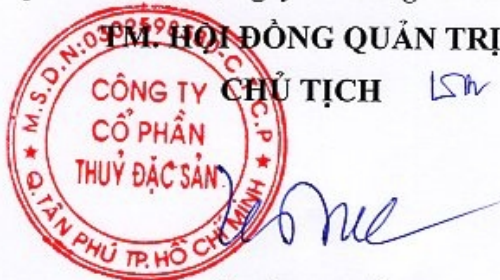 TM. HỘI ĐỒNG QUẢN TRỊ
CHỦ TỊCH
CÔNG TY
CỔ PHẦN
THUỶ ĐẶC SẢN
Q. TÂN PHÚ TP. HỒ CHÍ MINH